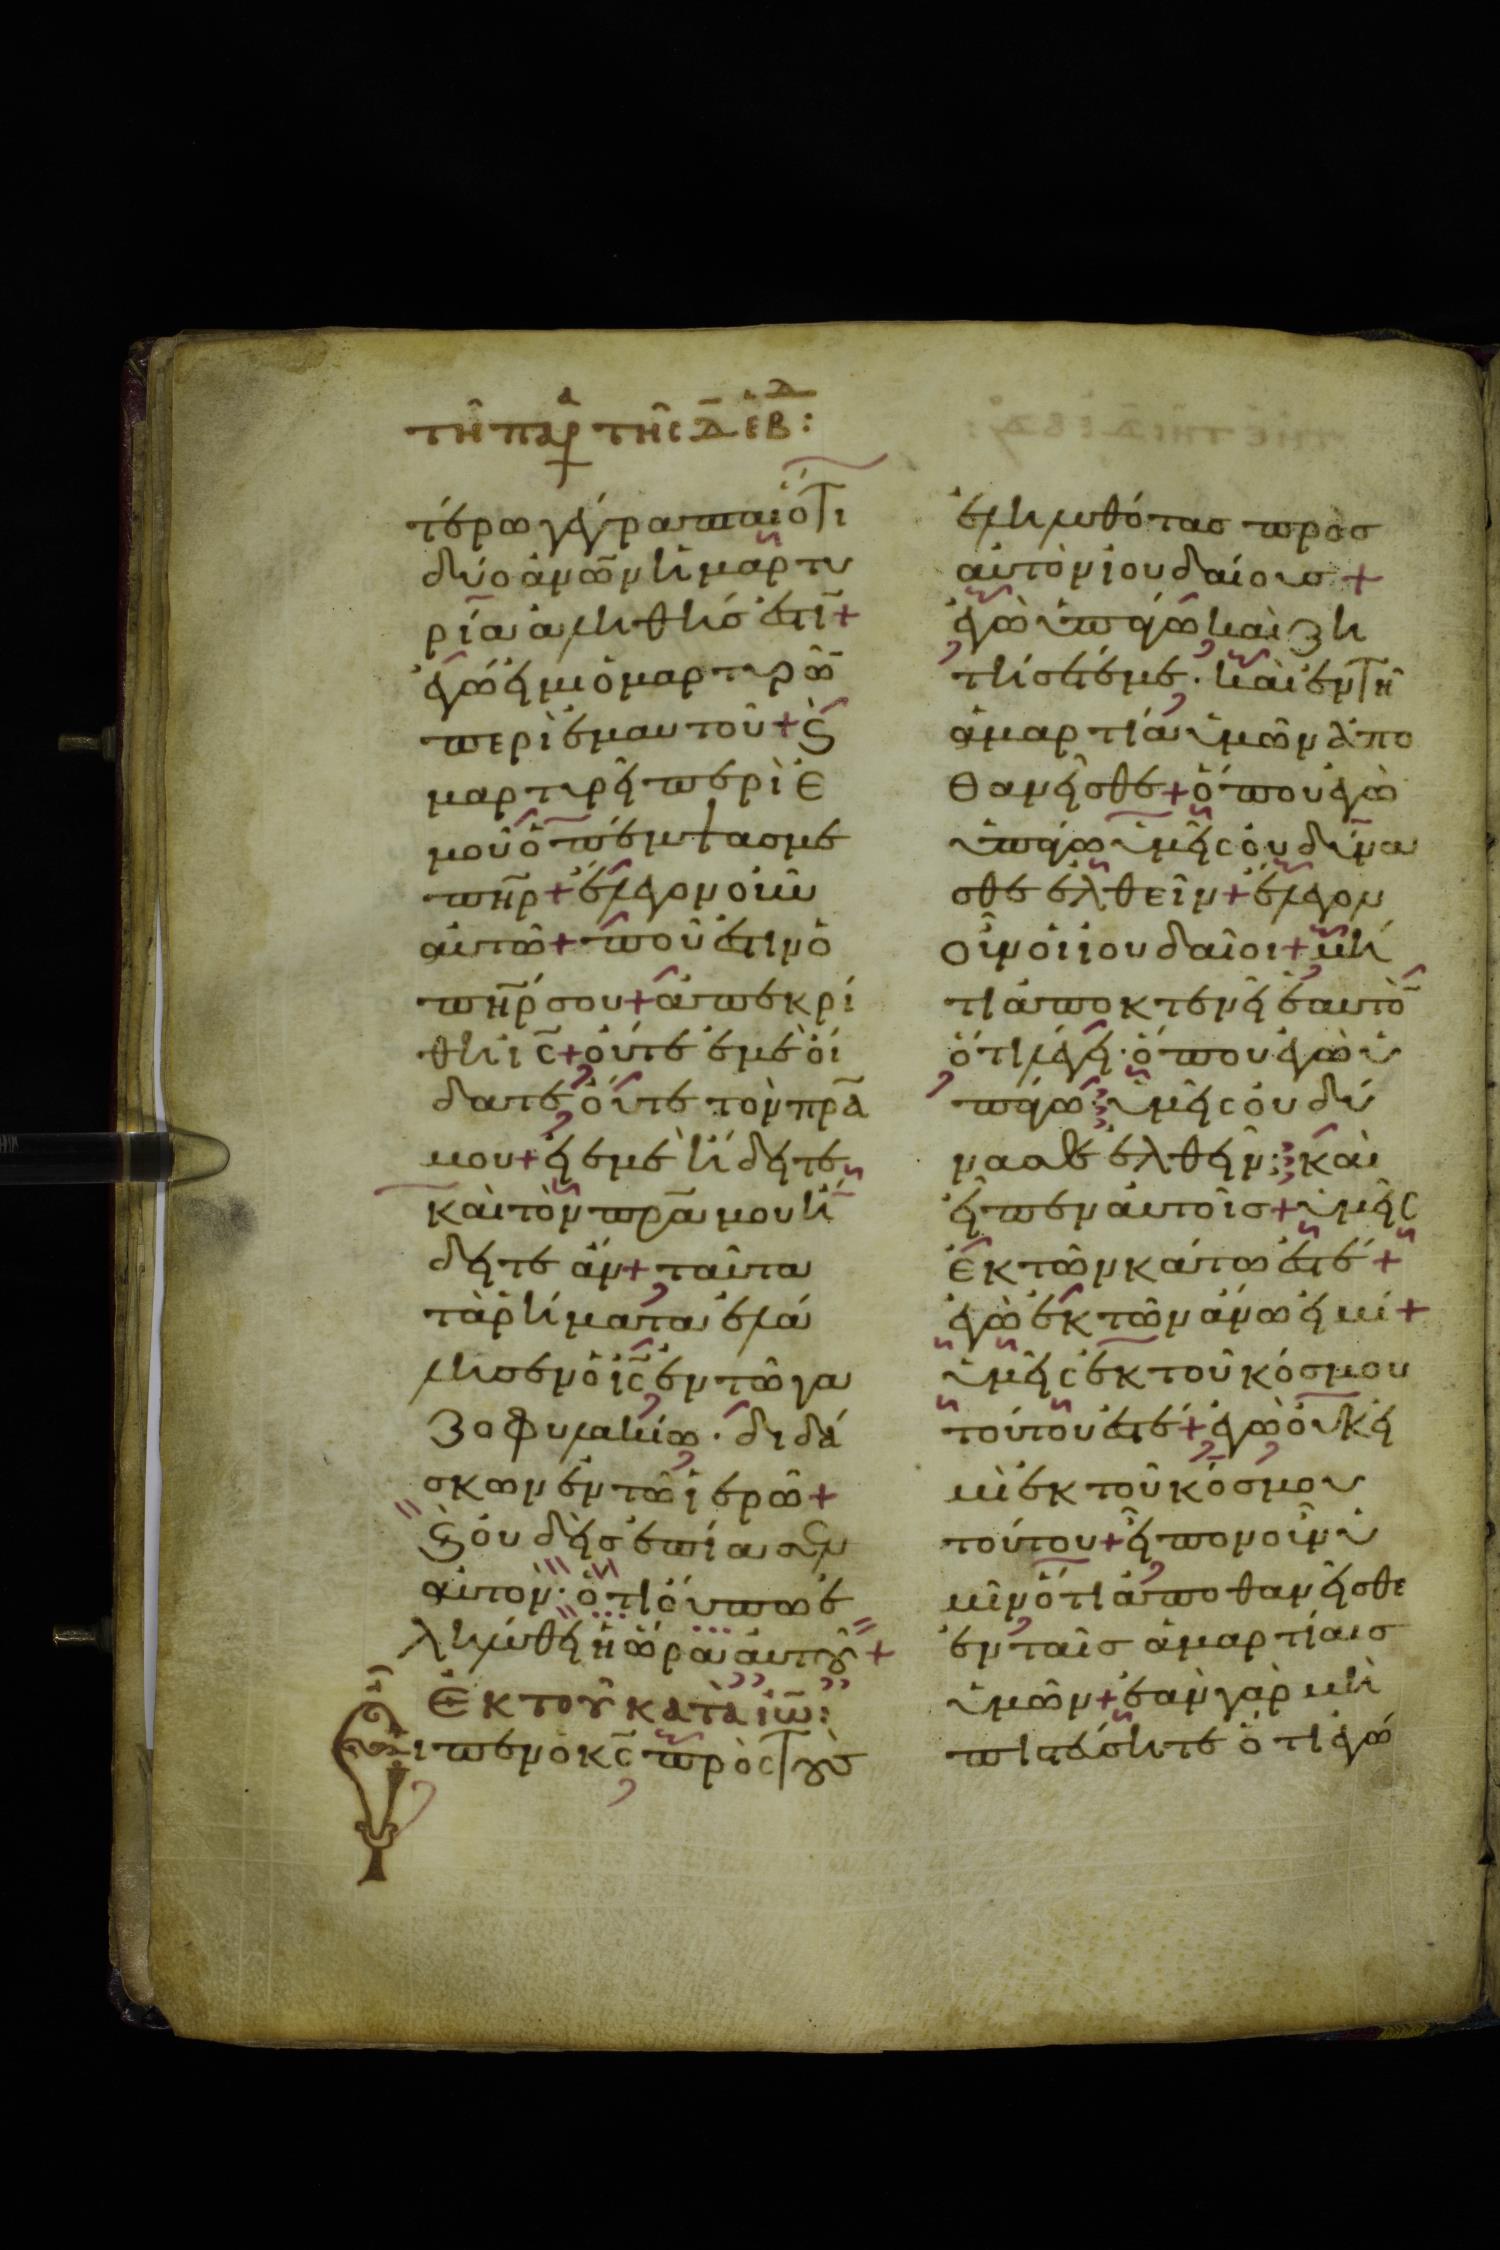 τῆ παρ^α τῆς Δ̄ ἑβ^δ:
τέρω γέγραπται ὅτι
δύο ἀνω̄ν ἡ μαρτυ
ρία ἀληθής ἐστϊ+
ἐγώ εἰμι ὁ μαρτυρῶ̄
περὶ ἐμαυτοῦ+ϗ
μαρτυρεῖ περὶ ἐ
μοῦ ὁ πέμψας με
πη̄ρ+ἔλεγον οὖν
αὐτῶ+ποῦ ἐστιν ὁ
πη̄ρ σου+ἀπεκρί
θη ὁ ἰς̄+οὔτε ἐμὲ οἴ
δατε οὔτε τὸν πρ̄α
μου+εἰ ἐμὲ ἤδειτε
καὶ τὸν πρ̄α μου ἤ
δειτε ἄν+ταῦτα
τὰ ῥήματα ἐλά
λησεν ὁ ἰς̄ ἐν τῶ γα
ζοφυλακίω· διδά
σκων ἐν τῶ ἱερῶ+
ϗ οὐδεὶς ἐπίασεν
αὐτόν· ὅτι οὔπω ἐ
ληλύθει ἡ ὥρα αὐτοῦ+
Ἐκ τοῦ κατὰ ἰω̄:
Εἶπεν ὁ κς̄ πρὸς τοὺς
ἐληλυθότας πρὸς
αὐτὸν ἰουδαίους+
ἐγὼ ὑπάγω καὶ ζη
τήσετέ με· καὶ ἐν τῆ
ἁμαρτία ὑμῶν ἀπο
θανεῖσθε+ὅπου ἐγὼ
ὑπάγω ὑμεῖς οὐ δύνα
σθε ἐλθεῖν+ἔλεγον
οὖν οἱ ἰουδαῖοι+μή
τι ἀποκτενεῖ ἑαυτὸ̄
ὅτι λέγει· ὅπου ἐγὼ ὑ
πάγω ὑμεῖς οὐ δύ
νασθε ἐλθεῖν; καὶ
εἶπεν αὐτοῖς+ὑμεῖς
ἐκ τῶν κάτω ἐστέ+
ἐγὼ ἐκ τῶν ἄνω εἰμί+
ὑμεῖς ἐκ τοῦ κόσμου
τούτου ἐστέ+ἐγὼ οὐκ εἰ
μὶ ἐκ τοῦ κόσμου
τούτου+εἶπον οὖν ὑ
μῖν ὅτι ἀποθανεῖσθε
ἐν ταῖς ἁμαρτίαις
ὑμῶν+ἐὰν γὰρ μὴ
πιστεύσητε ὅτι ἐγώ